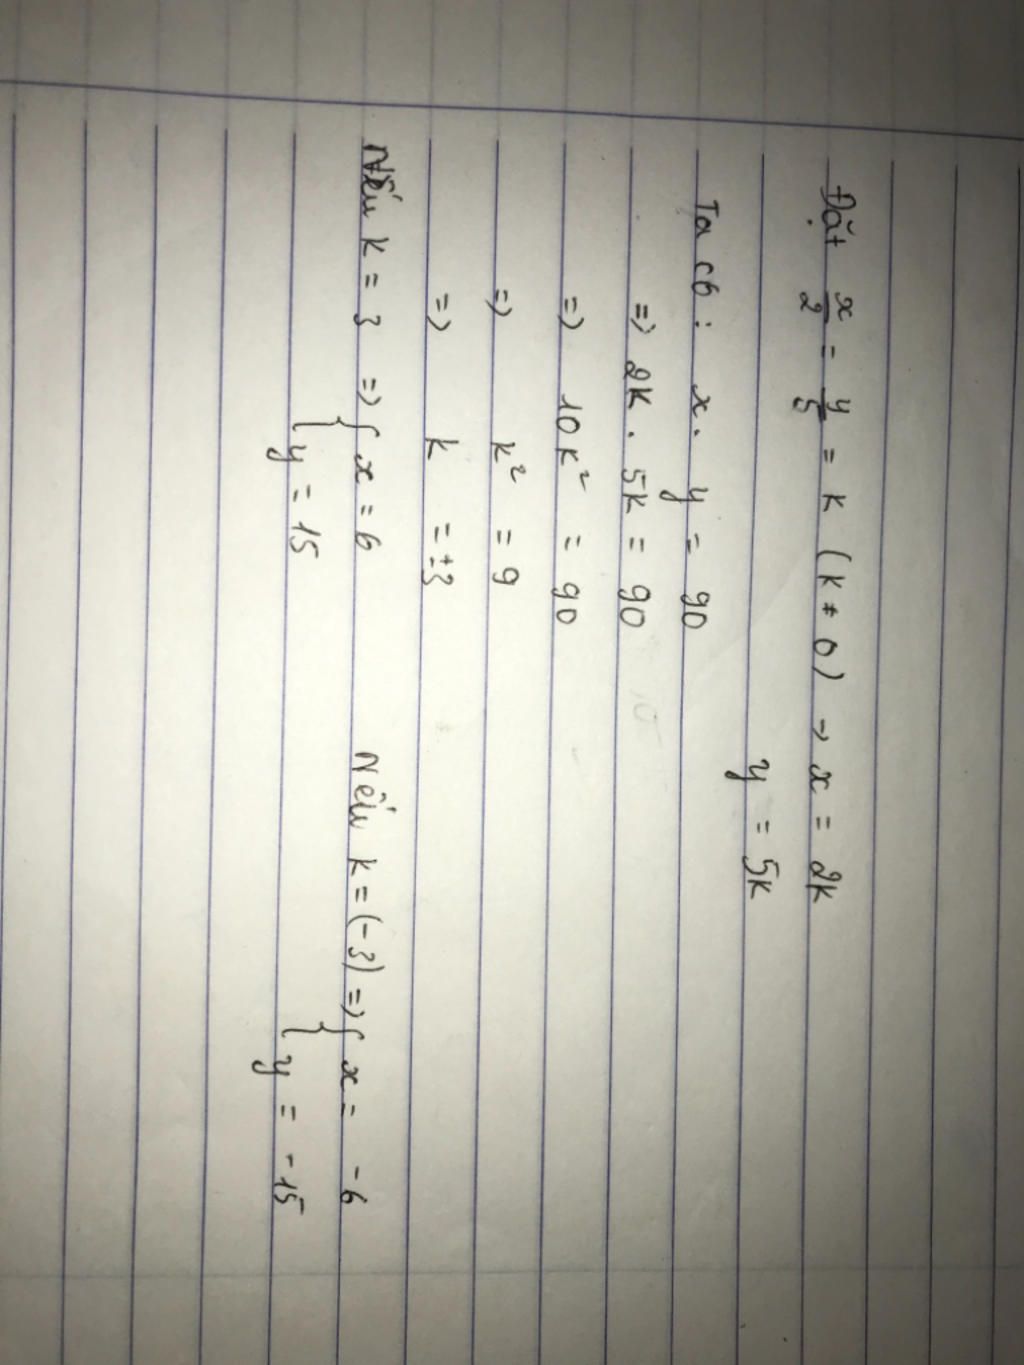 Đặt x/2 = y/5 = k (k ≠ 0) → x = 2k
y = 5k
Ta có : x . y = 90
=> 2k . 5k = 90
=> 10k² = 90
=> k² = 9
=> k = ±3
Nếu k = 3 => { x = 6 Nếu k = (-3) => { x = -6
{ y = 15 { y = -15